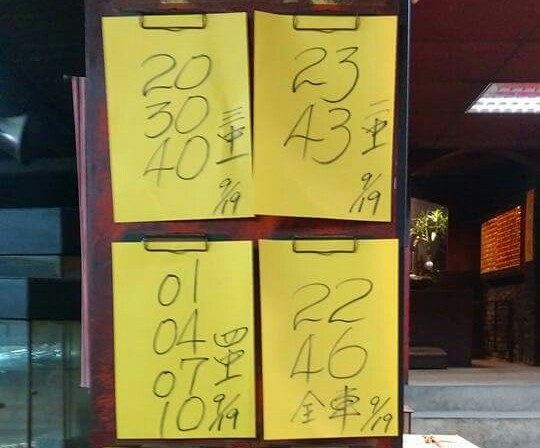 20
30
40
三中一
9/19
23
43
二中一
9/19
01
04
07
10
四中一
9/19
22
46
全車 9/19